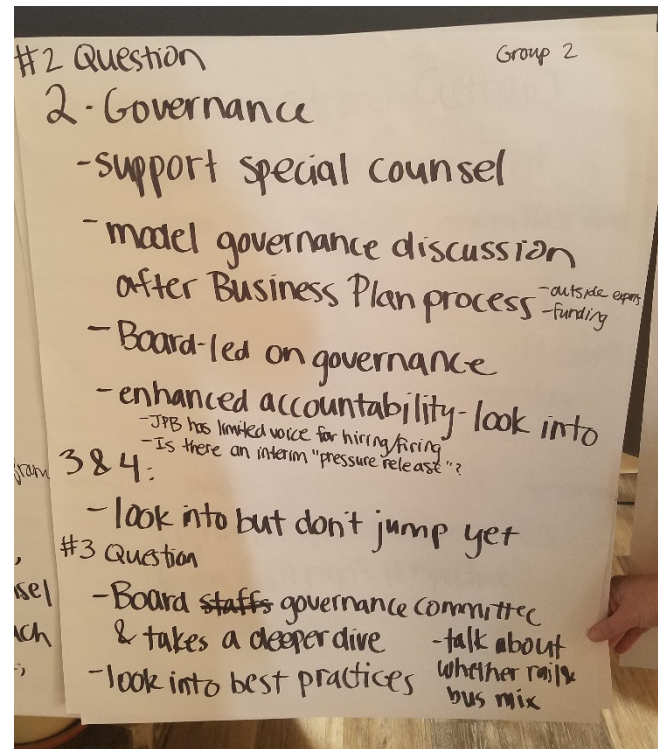 #2 Question
Group 2
2 - Governance
- support special counsel
- model governance discussion
after Business Plan process
- outside expers
- funding
- Board-led on governance
- enhanced accountability - look into
- JPB has limited voice for hiring/firing
- Is there an interim "pressure release"?
3 & 4:
- look into but don't jump yet
#3 Question
- Board staffs governance committee
& takes a deeper dive
- look into best practices
- talk about
whether rail &
bus mix
sel
ach